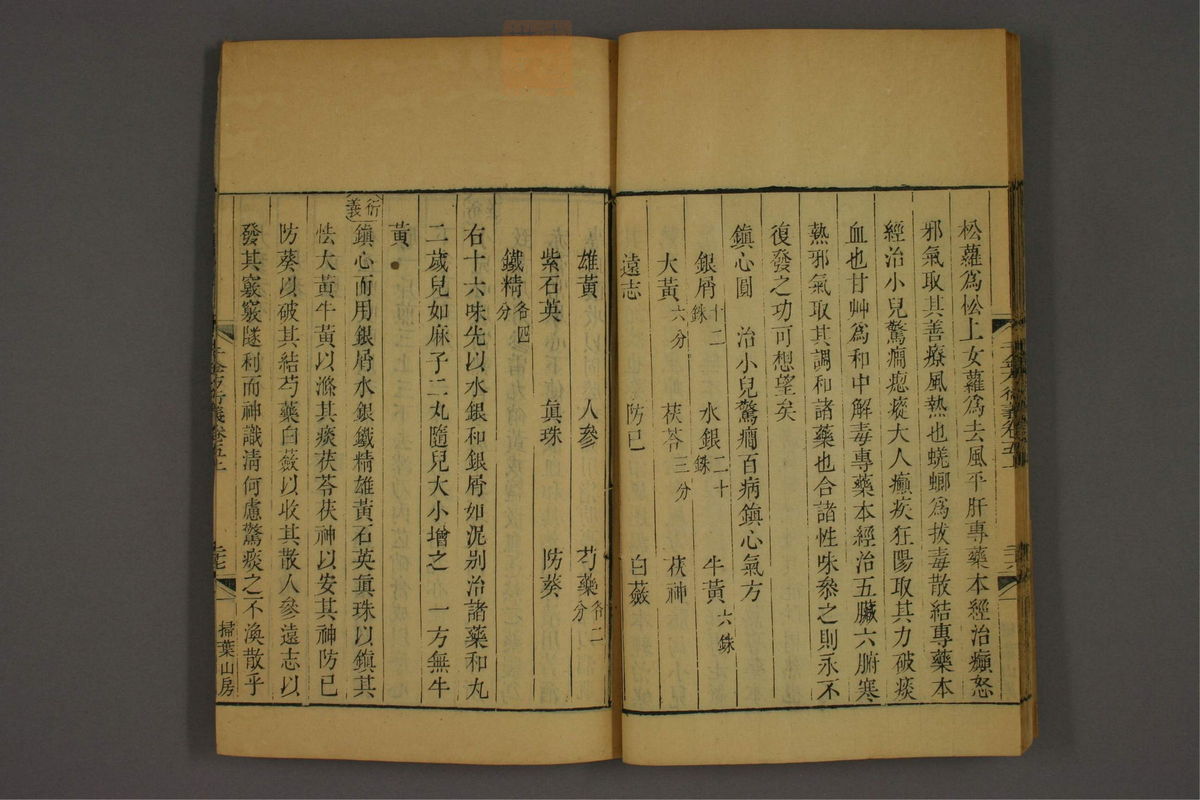 松蘿爲松上女蘿爲去風平肝專藥本經治癲怒
邪氣取其善療風熱也蜣螂爲拔毒散結專藥本
經治小兒驚癇瘛瘲大人癲疾狂陽取其力破痰
血也甘艸爲和中解毒專藥本經治五臟六腑寒
熱邪氣取其調和諸藥也合諸性味叅之則永不
復發之功可想望矣
鎮心圓　治小兒驚癇百病鎮心氣方
銀屑十二銖　水銀二十銖　牛黃六銖
大黃六分　茯苓三分　茯神
遠志　防已　白蘞
雄黃　人參　芍藥各二分
紫石英　眞珠　防葵
鐵精各四分
右十六味先以水銀和銀屑如泥别治諸藥和丸
二歲兒如麻子二丸隨兒大小增之　一方無牛
黃
衍義
鎮心而用銀屑水銀鐵精雄黃石英眞珠以鎮其
怯大黃牛黃以滌其痰茯苓茯神以安其神防已
防葵以破其結芍藥白蘞以收其散人參遠志以
發其竅竅隧利而神識淸何慮驚痰之不渙散乎
千金方衍義卷五上
掃葉山房